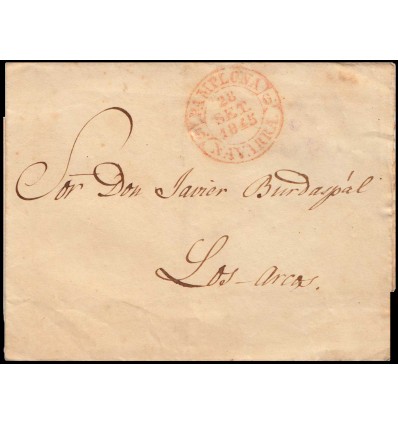 PAMPLONA 6.
28
SET.
1845
NAVARRA
Sor. Don Javier Burdaspál
Los-Arcos.